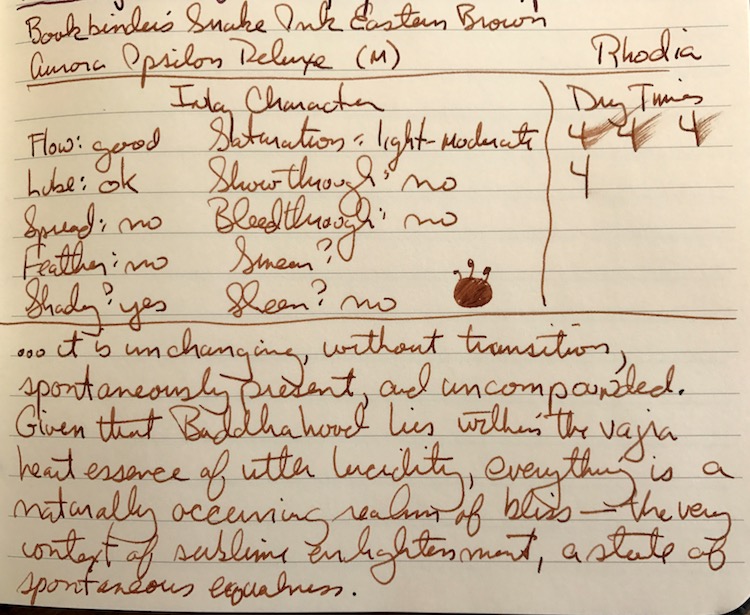 Bookbinder's Snake Ink Eastern Brown
Aurora Ipsilon Deluxe (M) Rhodia
Ink Character Dry Times
Flow: good Saturation: light-moderate 4 4 4
Lube: ok Show through: no 4
Spread: no Bleedthrough: no
Feather: no Smear?
Shady? yes Sheen? no
... it is unchanging, without transition,
spontaneously present, and uncompounded.
Given that Buddhahood lies within the vajra
heart essence of utter lucidity, everything is a
naturally occurring realm of bliss — the very
context of sublime enlightenment, a state of
spontaneous equalness.